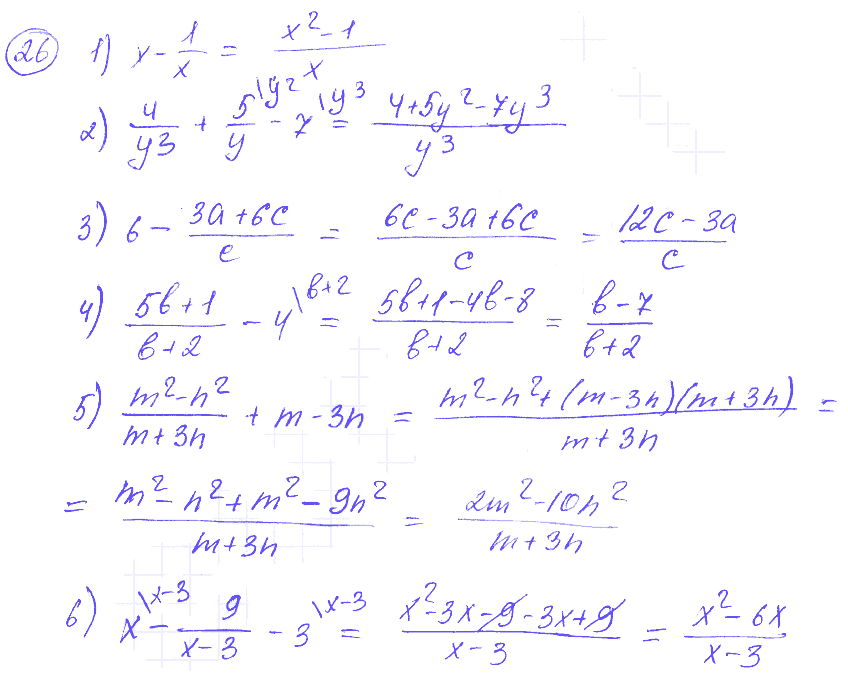 26 1) x - 1/x = (x² - 1)/x
2) 4/y³ + 5/y \y² - 7 \y³ = (4 + 5y² - 7y³)/y³
3) 6 - (3a + 6c)/c = (6c - 3a + 6c)/c = (12c - 3a)/c
4) (5b + 1)/(b + 2) - 4 \b+2 = (5b + 1 - 4b - 8)/(b + 2) = (b - 7)/(b + 2)
5) (m² - n²)/(m + 3n) + m - 3n = (m² - n² + (m - 3n)(m + 3n))/(m + 3n) =
= (m² - n² + m² - 9n²)/(m + 3n) = (2m² - 10n²)/(m + 3n)
6) x \x-3 - 9/(x - 3) - 3 \x-3 = (x² - 3x - 9 - 3x + 9)/(x - 3) = (x² - 6x)/(x - 3)